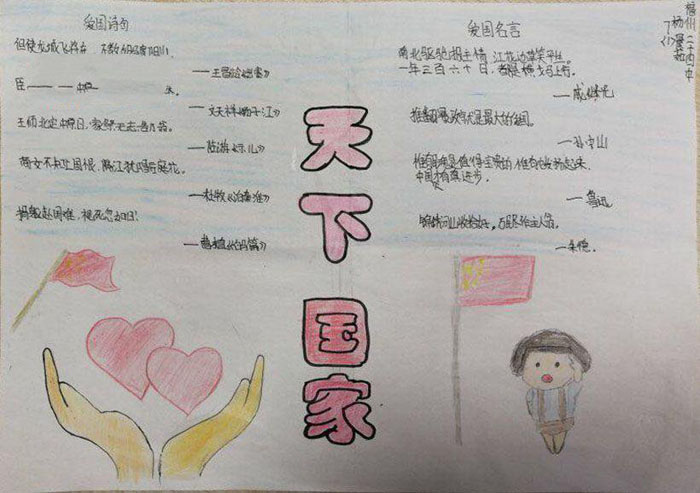 爱国诗句
但使龙城飞将在 不教胡马度阴山
——王昌龄《出塞》
臣
——文天祥《扬子江》
王师北定中原日,家祭无忘告乃翁。
——陆游《示儿》
商女不知亡国恨,隔江犹唱后庭花。
——杜牧《泊秦淮》
捐躯赴国难,视死忽如归!
——曹植《白马篇》
天下国家
爱国名言
南北驱驰报主情 江花边草笑平生
一年三百六十日,都是横戈马上行。
——戚继光
——孙中山
惟有民魂是值得宝贵的,惟有他发扬起来,
中国才有真进步。
——鲁迅
锦绣河山收拾好,万民尽作主人翁。
——朱德